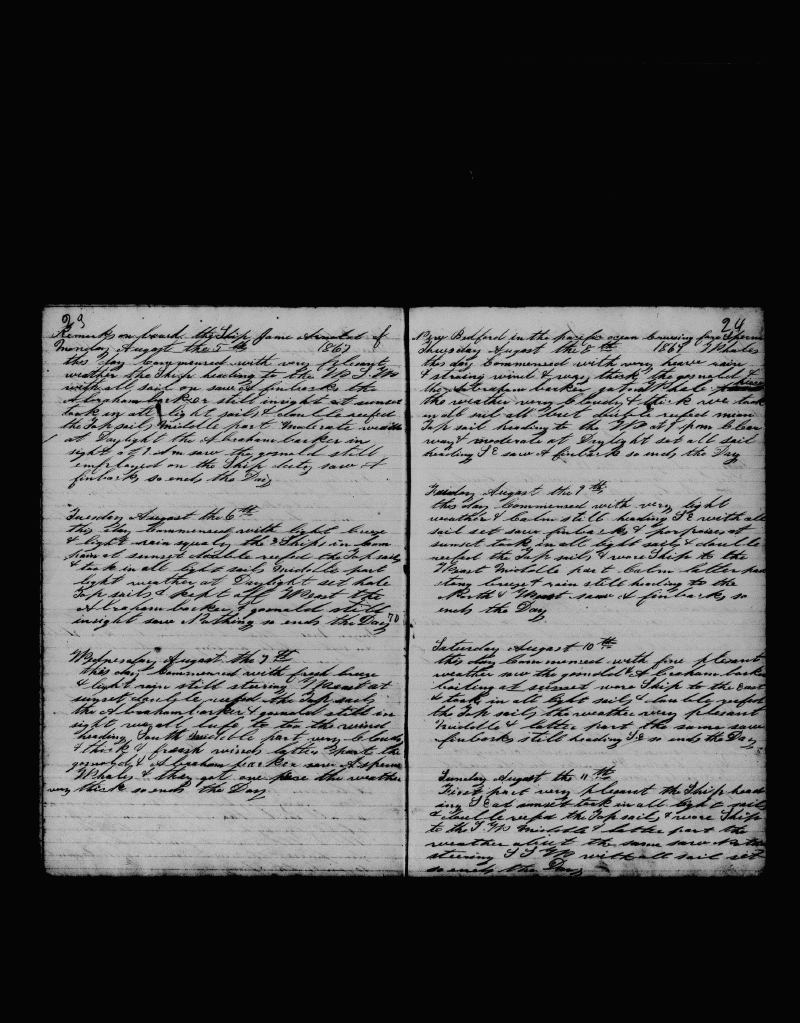 23
Remarks on board the Ship Jame Arnold of
Monday August the 5 th 1867
this day Commenced with very plesant
weather the Ship heading to the W S W
with all sail on saw A finbacks the
Abraham barker still insight at sunset
took in all light sails & double reefed
the Top sails middle part moderate weather
at Daylight the Abraham barker in
sight at 9 A m saw the gosnold still
employed on the Ship duty saw A
finbacks so ends the Day
Tuesday August the 6 th
this day Commenced with light breeze
& light rain squaly the 3 Ships in Com
pan at sunset double reefed the Top sails
& took in all light sails middle part
light weather at Daylight set hole
Top sails & kept off West the
Abraham barker & gosnold still
insight saw Nothing so ends the Day
Wednesday August the 7 th
this day Commenced with fresh breeze
& light rain still steering West at
sunset double reefed the Top sails
the Abraham barker & gosnold still in
sight we all lufe to the wind
heading South middle part very Cloudy
& thick & fresh winds latter part the
gosnold & Abraham barker saw A sperm
Whales & they got one pece the weather
very thick so ends the Day
24
New Bedford in the pacific ocean Cruising for Sperm
Thursday August the 8 th 1867 Whales
this day Commenced with very heave rain
& strong wind & very thick the gosnold &
the Abraham barker got A Whale
the weather very Cloudy & thick we took
in all sail all but reefed main
Top sail heading to the W at 1 pm Clear
way & moderate at Daylight set all sail
heading S E saw A finbacks so ends the Day
Friday August the 9 th
this day Commenced with very light
weather & Calm still heading S E with all
sail set saw finbacks & porpoises at
sunset took in all light sails & double
reefed the Top sails & wore Ship to the
West middle part Calm latter part
stong breeze & rain still heading to the
North & West saw A finbacks so
ends the Day
Saturday August 10 th
this day Commenced with fine plesant
weather saw the gosnold & Abraham barker
boiling at sunset wore Ship to the East
& took in all light sails & double reefed
the Top sails the weather very pleasant
middle & latter part the same saw
finbacks still heading S E so ends the Day
Sunday August the 11 th
First part very plesent the Ship head
ing S E at sunset took in all light sails
& double reefed the Top sails & wore Ship
to the S W middle & latter part the
weather about the same saw
steering S S W with all sail set
so ends the Day